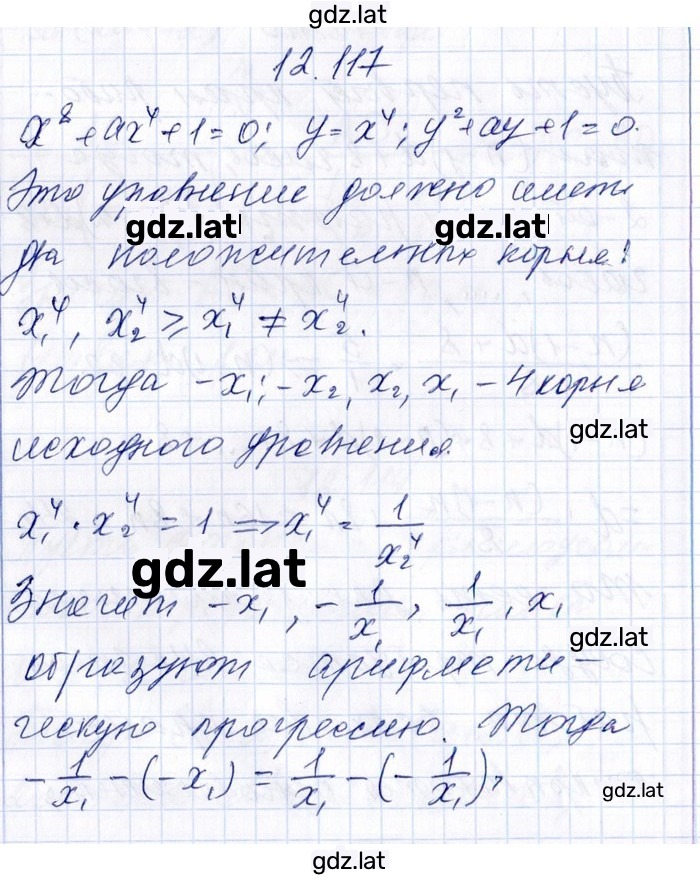 gdz.lat
12.117
x⁸ + ax⁴ + 1 = 0; y = x⁴; y² + ay + 1 = 0.
Это уравнение должно иметь
gdz.lat gdz.lat
два положительных корня:
x₁⁴, x₂⁴ ⩾ x₁⁴ ≠ x₂⁴.
Тогда -x₁; -x₂, x₂, x₁ - 4 корня
gdz.lat
исходного уравнения.
x₁⁴ · x₂⁴ = 1 ⟹ x₁⁴ = 1/x₂⁴
gdz.lat
Значит -x₁, -1/x₁, 1/x₁, x₁
gdz.lat
образуют арифмети-
ческую прогрессию. Тогда
-1/x₁ - (-x₁) = 1/x₁ - (-1/x₁),
gdz.lat
gdz.lat